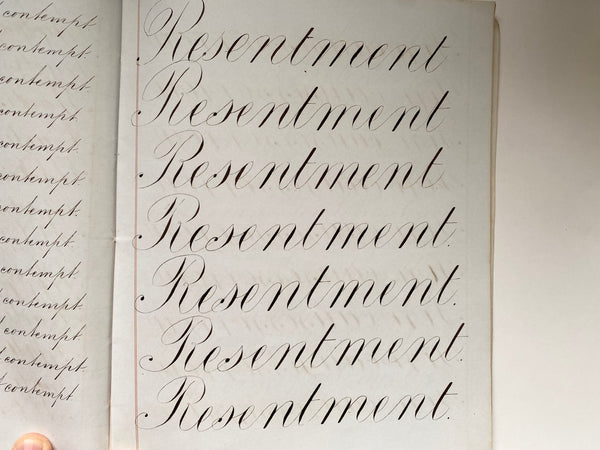 contempt
contempt.
contempt
contempt
contempt
contempt.
contempt.
contempt.
contempt.
contempt.
contempt.
contempt.
contempt
Resentment
Resentment
Resentment
Resentment.
Resentment.
Resentment.
Resentment.